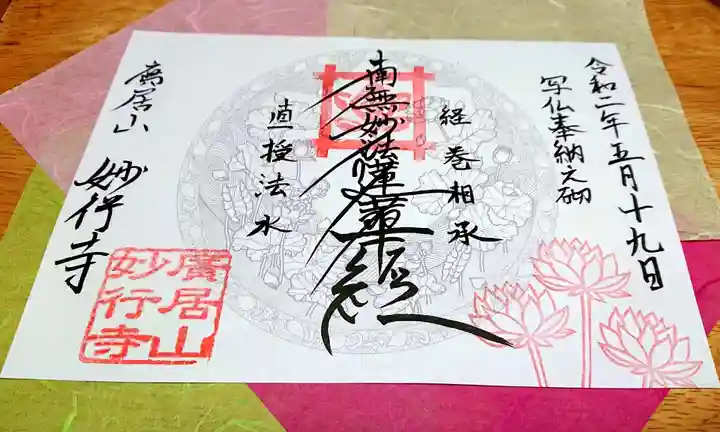 令和二年五月十九日
写仏奉納之砌
経巻相承
南無妙法蓮華経
直授法水
廣居山
妙行寺
廣居山
妙行寺